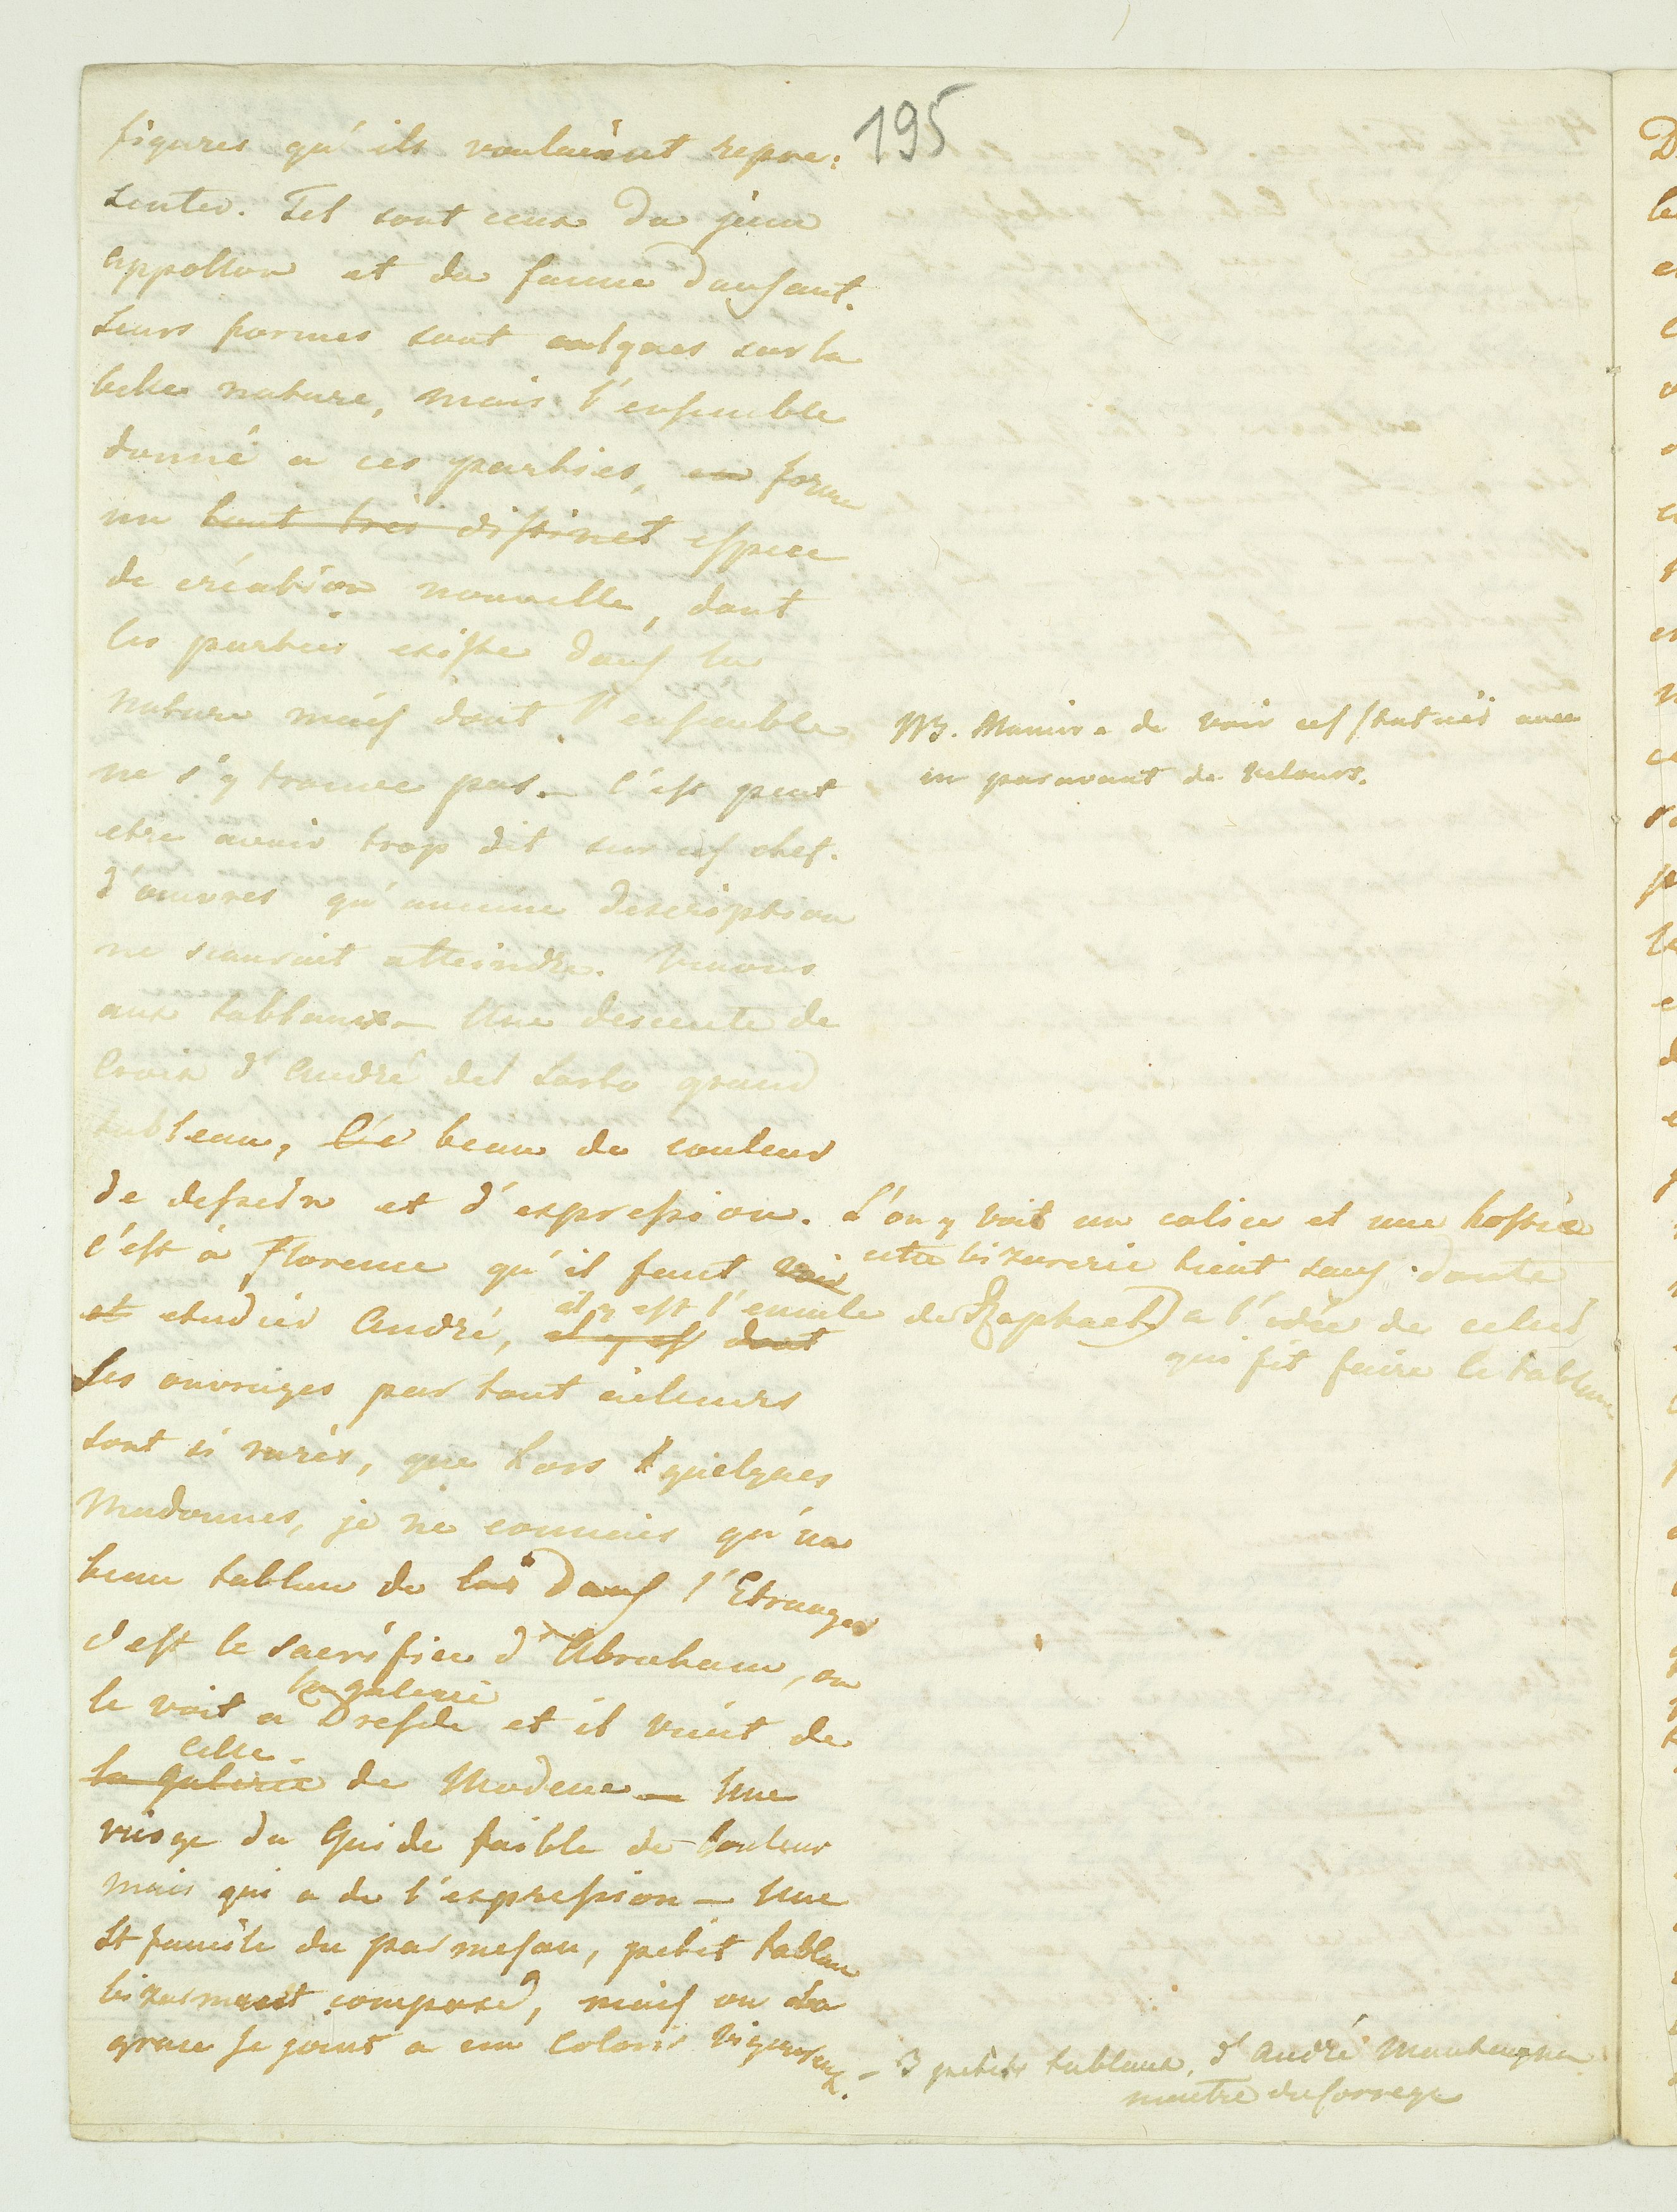 195
figures qu'ils vouloient repre:
senter. Tel sont ceux du jeune
Appollon et du faune dansant.
Leurs formes sont calques sur la
belle nature, mais l'ensemble
donné a ces parties, en forme
un tout très distinct espece
de création nouvelle, dont
les parties existe dans la
nature mais dont l'ensemble
ne s'y trouve pas. – C'est peut
etre avoir trop dit sur ces chef.
d'oeuvres qu'aucune description
ne scauroit atteindre. Venons
aux tableaux – Une descente de
Croix d'André del Sarto grand
tableau, beau de couleur
de dessein et d'expression.
c'est à Florence qu'il faut voir
et etudier André, il y est l'emule de Raphael
il y est dont
Ses ouvrages par tout ailleurs
sont si rares, que hors quelques
Madonnes, je ne connais qu'un
beau tableau de lui dans l'Etranger
c'est le sacrifice d'Abraham, on
le voit a la galerie Dresde et il vient de
celle
la galerie de Modene – Une
vierge du Guide faible de couleur
mais qui a de l'expression – Une
St famile du parmesan, petit tableau
bizarment composé, mais ou la
grace se joint a un coloris vigoureux.
NB. Maniere de voir ces statues avec
un paravant de velours.
L'on y voit un calice et une hostie
cette bizarerie tient sans doute
a l'idée de celui
qui fit faire le tableau
– 3 petits tableaux, d'André Mantegna
maitre du Correge